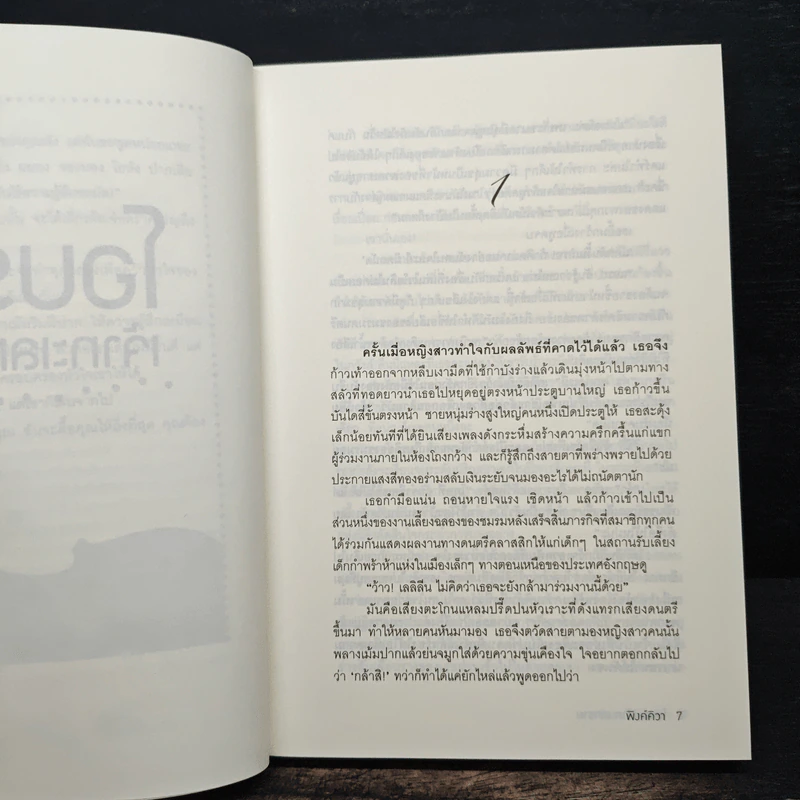 1
ครั้นเมื่อหญิงสาวทำใจกับผลลัพธ์ที่คาดไว้ได้แล้ว เธอจึง
ก้าวเท้าออกจากหลืบเงามืดที่ใช้กำบังร่างแล้วเดินมุ่งหน้าไปตามทาง
สลัวที่ทอดยาวนำเธอไปหยุดอยู่ตรงหน้าประตูบานใหญ่ เธอก้าวขึ้น
บันไดสี่ขั้นตรงหน้า ชายหนุ่มร่างสูงใหญ่คนหนึ่งเปิดประตูให้ เธอสะดุ้ง
เล็กน้อยทันทีที่ได้ยินเสียงเพลงดังกระหึ่มสร้างความครึกครื้นแก่แขก
ผู้ร่วมงานภายในห้องโถงกว้าง และก็รู้สึกถึงสายตาที่พร่างพรายไปด้วย
ประกายแสงสีทองอร่ามสลับเงินระยับจนมองอะไรได้ไม่ถนัดตานัก
เธอกำมือแน่น ถอนหายใจแรง เชิดหน้า แล้วก้าวเข้าไปเป็น
ส่วนหนึ่งของงานเลี้ยงฉลองของชมรมหลังเสร็จสิ้นภารกิจที่สมาชิกทุกคน
ได้ร่วมกันแสดงผลงานทางดนตรีคลาสสิกให้แก่เด็กๆ ในสถานรับเลี้ยง
เด็กกำพร้าห้าแห่งในเมืองเล็กๆ ทางตอนเหนือของประเทศอังกฤษดู
“ว้าว! เลลิลีน ไม่คิดว่าเธอจะยังกล้ามาร่วมงานนี้ด้วย”
มันคือเสียงตะโกนแหลมปรี๊ดปนหัวเราะที่ดังแทรกเสียงดนตรี
ขึ้นมา ทำให้หลายคนหันมามอง เธอจึงตวัดสายตามองหญิงสาวคนนั้น
พลางเม้มปากแล้วย่นจมูกใส่ด้วยความขุ่นเคืองใจ ใจอยากตอกกลับไป
ว่า ‘กล้าสิ!’ ทว่าก็ทำได้แค่ยักไหล่แล้วพูดออกไปว่า
พิงค์คิวา 7